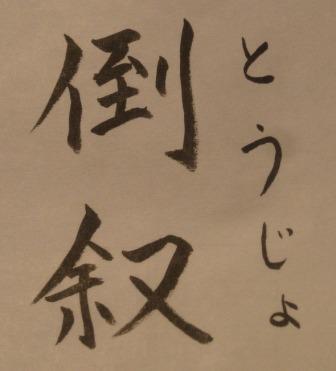 とうじょ
倒叙